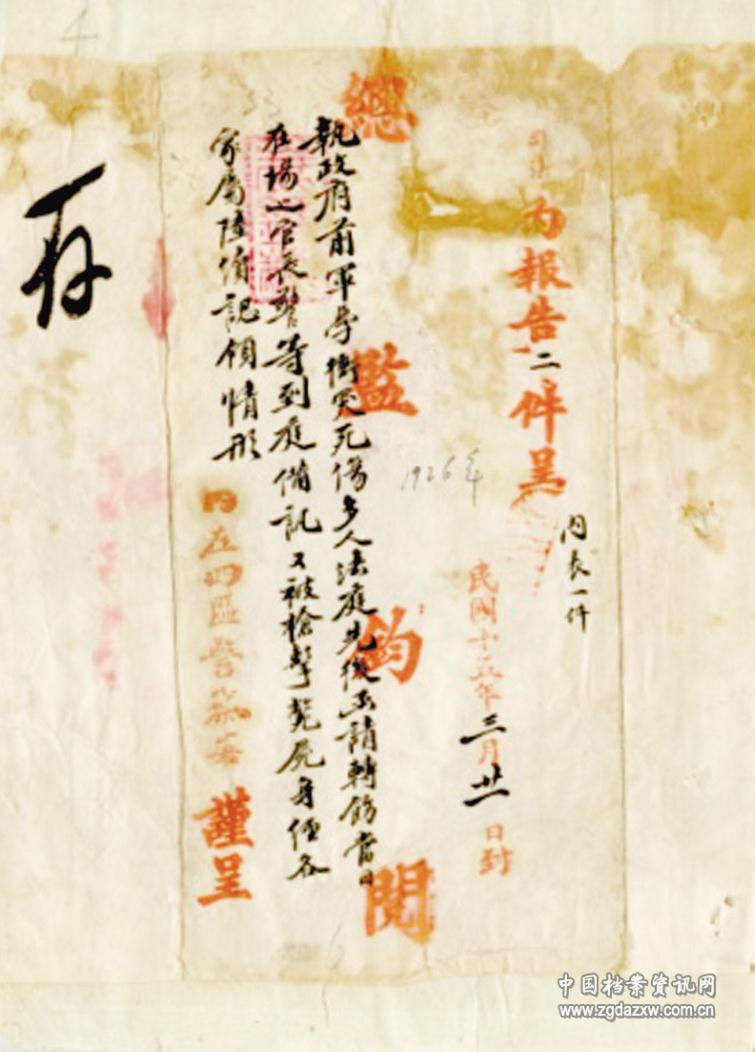 內表一件
為報告二件呈
民國十五年三月廿一日封
1926年
總監鈞閱
執政府前軍學衝突死傷多人法庭先後函請轉飭當日
在場之官長警等到庭備訊又被槍擊斃屍身經各
家屬陸續認領情形
內左四區警察署 謹呈
存
中国档案资讯网
www.zgdazxw.com.cn